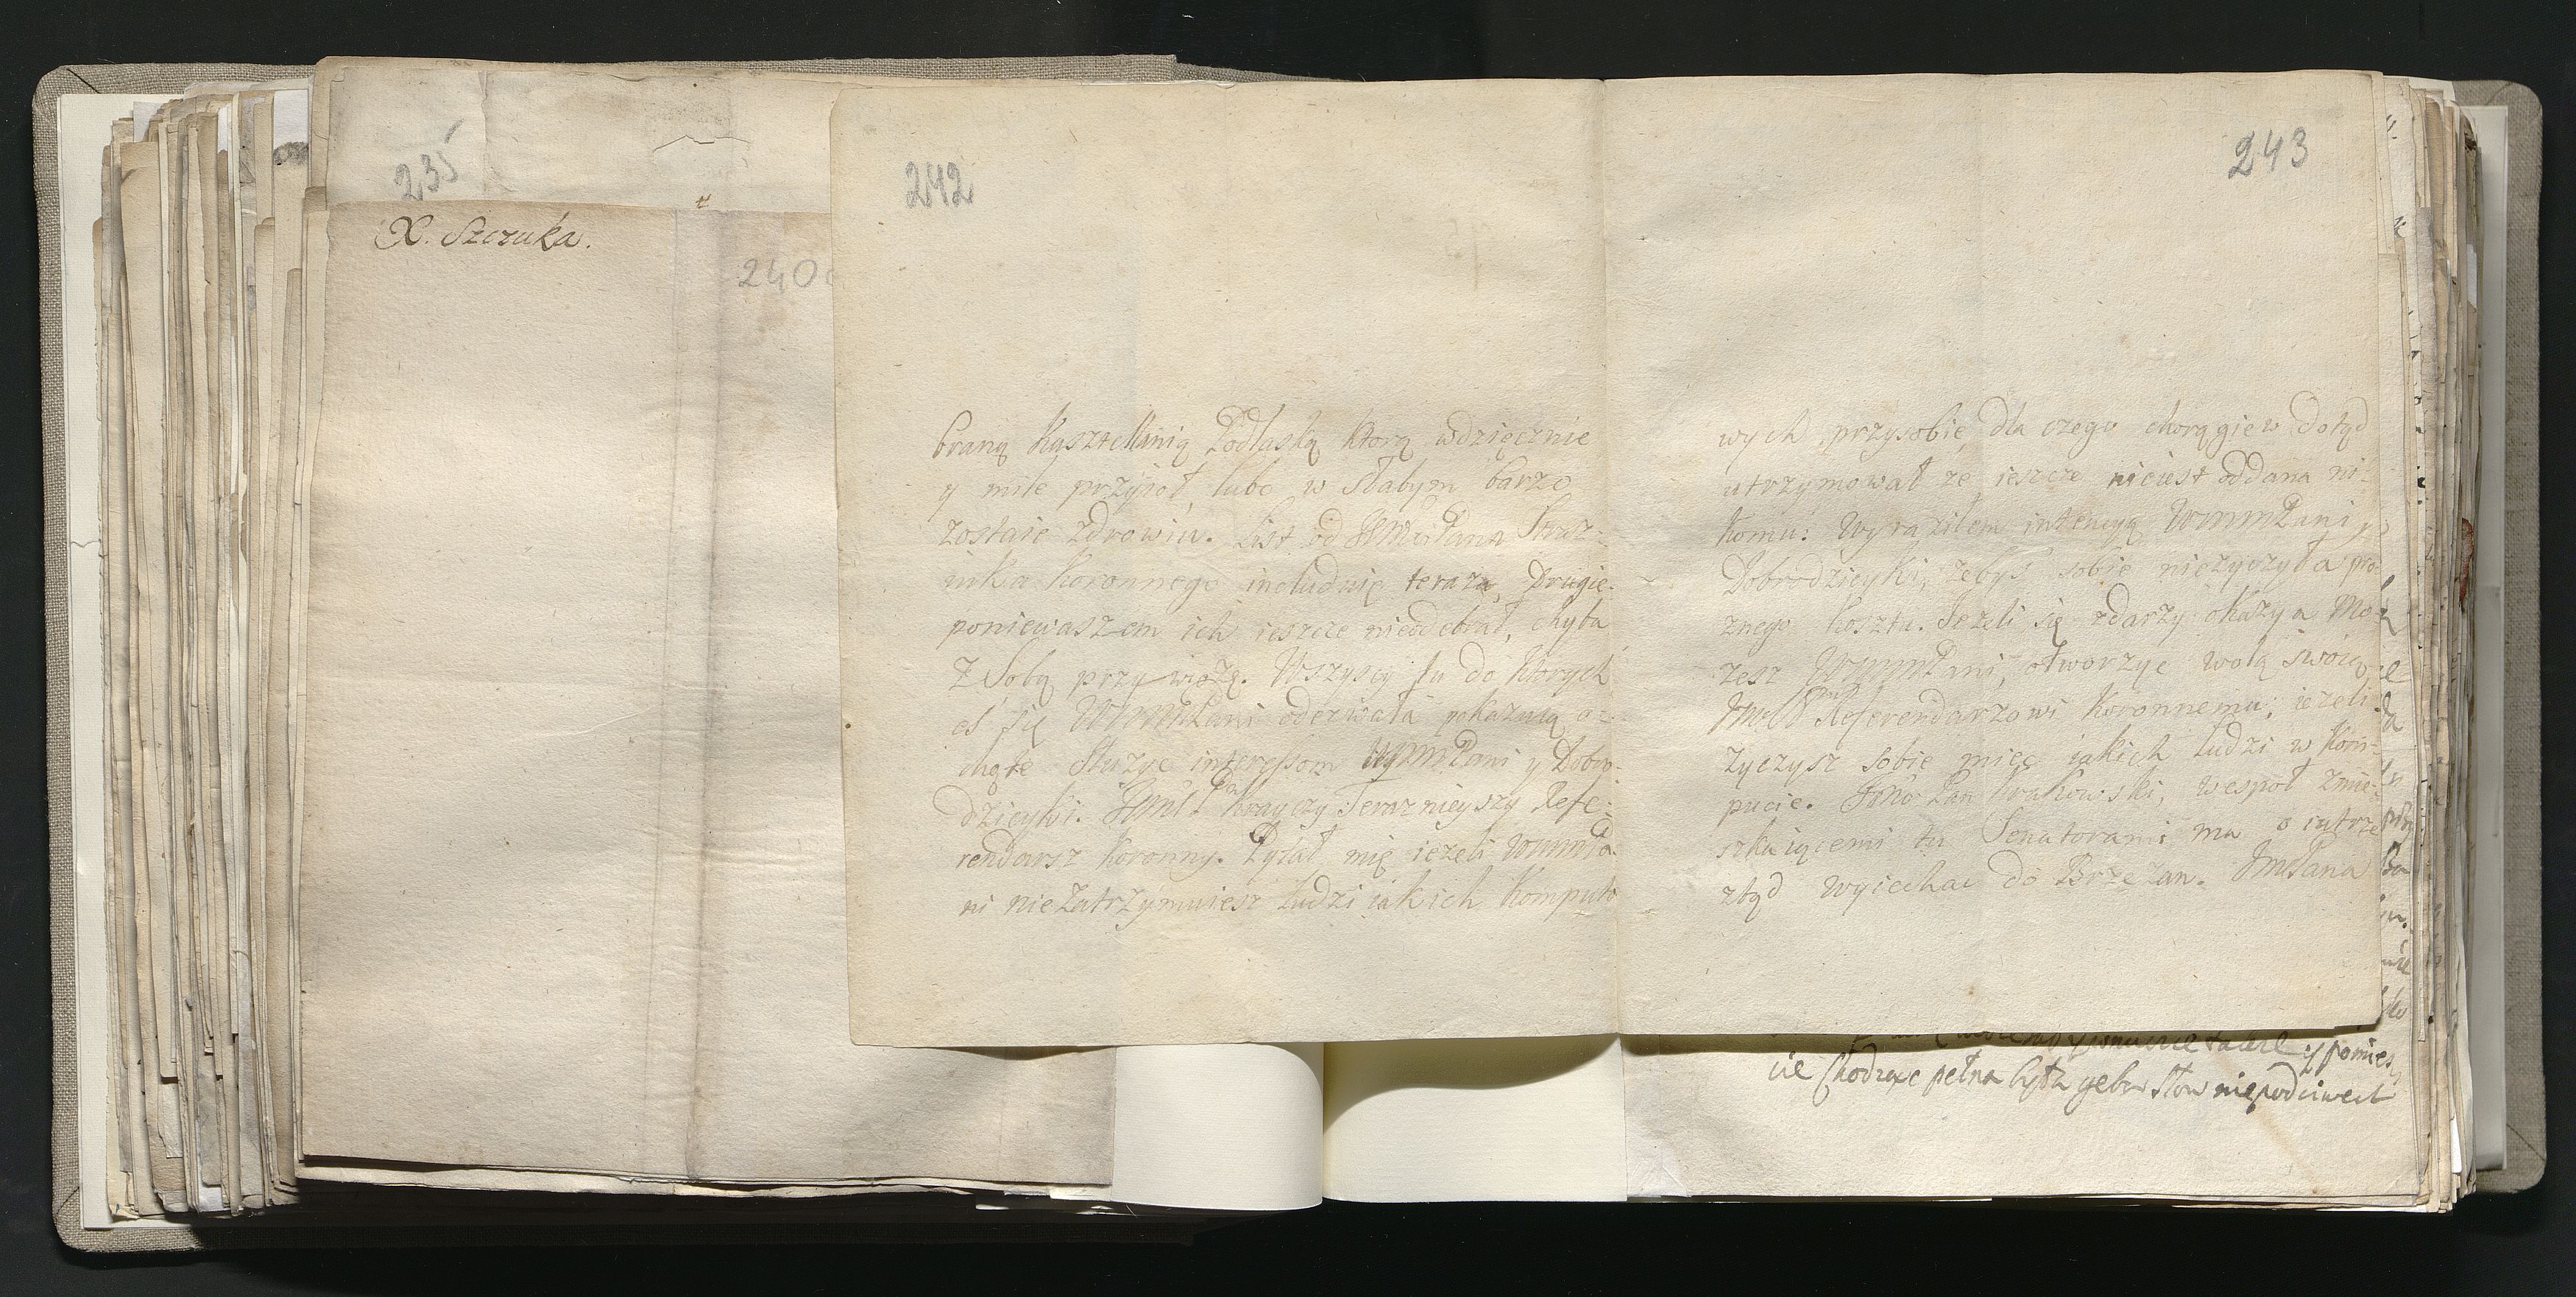 235
X. Szczuka.
240
242
braną Kasztellanią Podlaską ktorą wdzięcznie
y mile przyioł, lubo w słabym barzo
zostaie zdrowiu. List od Pana Straz-
nika Koronnego includuię teraza, Drugie-
poniewaszem ich ieszcze nieodebrał, chyba
z Sobą przywiozę. Wszyscy tu do ktorych
eś się WMMPani odezwała pokazuią o-
chotę słuzyc interessom WMMPani y Dobro-
dzieyki. JmćP Krayczy Teraznieyszy Refe-
rendarz Koronny. Pytał mię iezeli WMMPa-
ni niezatrzymuiesz ludzi iakich Komputo
243
wych przysobie, dla czego chorągiew dotąd
utrzymował ze ieszcze nieiest oddana ni-
komu: Wyraziłem intencyą WMMPani y
Dobrodzieyki, zebyś sobie nieżyczyła pro-
znego kosztu. Jezli się zdarzy okazya Mo-
zesz WMMPani, otworzyc wolą swoią
Referendarzowi Koronnemu; iezeli
zyczysz sobie miec iakich ludzi w Kom-
pucie. Pan Krakowski, wespoł zmie-
szkaiącemi tu Senatorami ma o iutrze
ztąd wyiechac do Brzezan. JmPana
y pomies
cie chodząc pełna była gęba słow niepodciwech